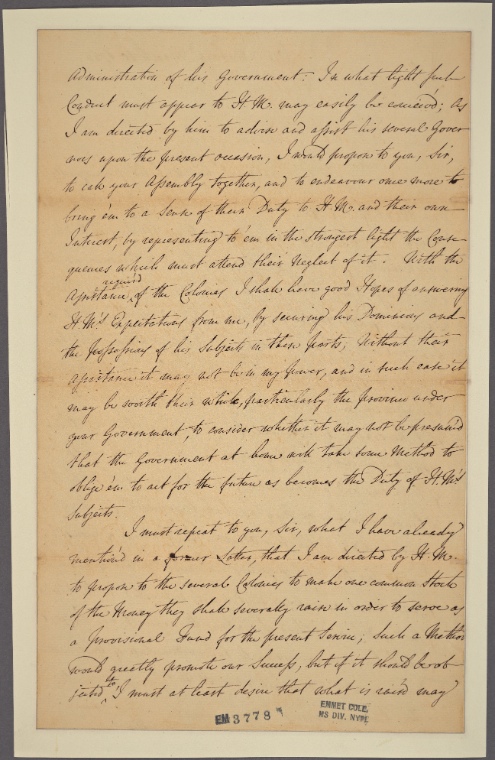 Administration of his Government. In what light such
Conduct must appear to H.M. may easily be conceiv'd; as
I am directed by him to advise and assist his several Gover
nors upon the present occasion, I would propose to you, Sir,
to call your Assembly together, and to endeavour once more to
bring 'em to a Sense of their Duty to H.M. and their own
Interest, by representing to 'em in the strongest light the Conse
quences which must attend their Neglect of it. With the
required
Assistance, of the Colonies I shall have good Hopes of answering
H.M's Expectations from me, by securing his Dominions and
the Possessions of his Subjects in these parts; Without their
Assistance it may not be in my power, and in such case it
may be worth their while, particularly the Province under
your Government, to consider whether it may not be presum'd
that the Government at home will take some Method to
oblige 'em to act for the future as becomes the Duty of H.M's
Subjects.
I must repeat to you, Sir, what I have already
mention'd in a former Letter, that I am directed by H.M.
to propose to the several Colonies to make one common Stock
of the Money they shall severally raise in order to serve as
a provisional Fund for the present Service; Such a Method
would greatly promote our Success; but if it should be ob
to
jected, I must at least desire that what is rais'd may
EM 3778
EMMET COLE,
MS DIV. NYPL